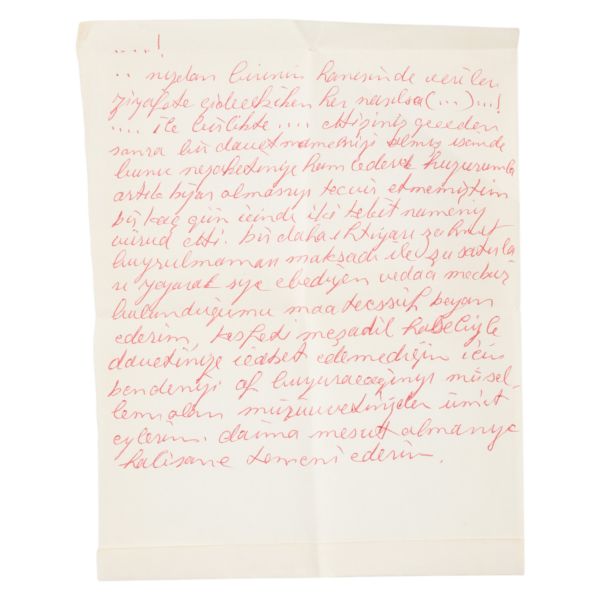 ....!
.. nizdan birinin hanesinde verilen
ziyafete gidecekken her nasılsa (...)...!
.... ile birlikte .... ettiğiniz geceden
sonra bir davetnamenizi almış isemde
bunu nezaketinize hamlederek huzurumla
artık bizar olmasını tecviz etmemiştim
bir kaç gün içinde iki
vürud etti. bir daha ihtiyarı zahmet
buyrulmaması maksadı ile şu satırla
rı yazarak size ebediyen vedaa mecbur
bulunduğumu maateessüf beyan
ederim,
davetinize icabet edemediğim için
bendenizi af buyuracağınızı müsel-
lem olan mürüvvetinizden ümit
eylerim. daima mesut olmanızı
halisane temenni ederim.